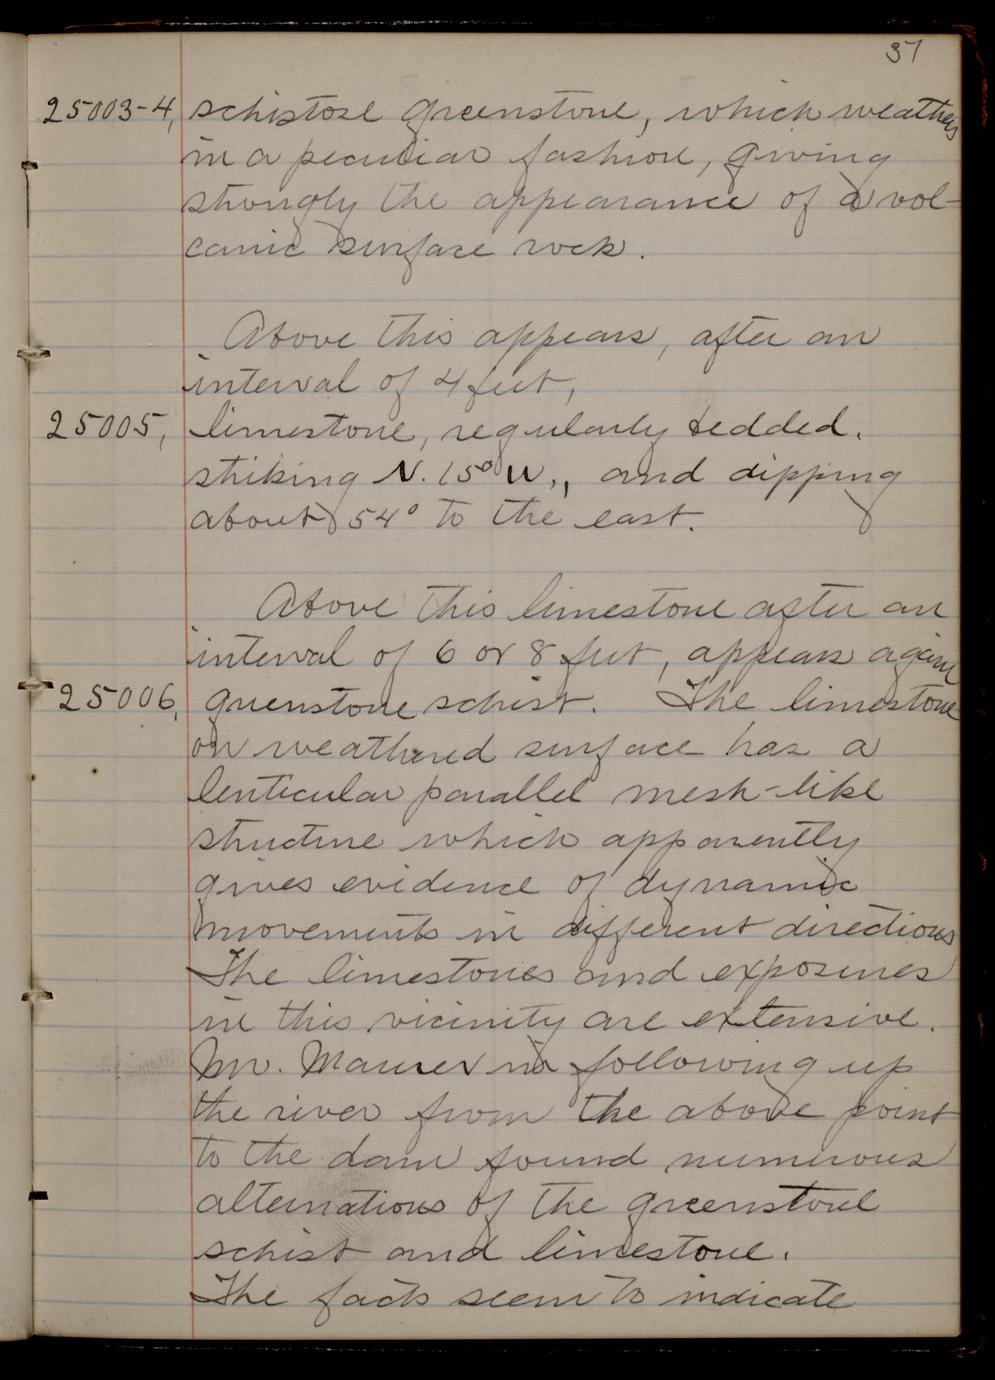 37
25003-4, schistose greenstone, which weathers
in a peculiar fashion, giving
strongly the appearance of a vol-
canic surface rock.
Above this appears, after an
interval of 4 feet,
25005, limestone, regularly bedded.
striking N. 15° W., and dipping
about 54° to the east.
Above this limestone after an
interval of 6 or 8 feet, appears again
25006, greenstone schist. The limestone
on weathered surface has a
lenticular parallel mesh-like
structure which apparently
gives evidence of dynamic
movements in different directions
The limestones and exposures
in this vicinity are extensive.
Mr. Maurer in following up
the river from the above point
to the dam found numerous
alternations of the greenstone
schist and limestone.
The facts seem to indicate